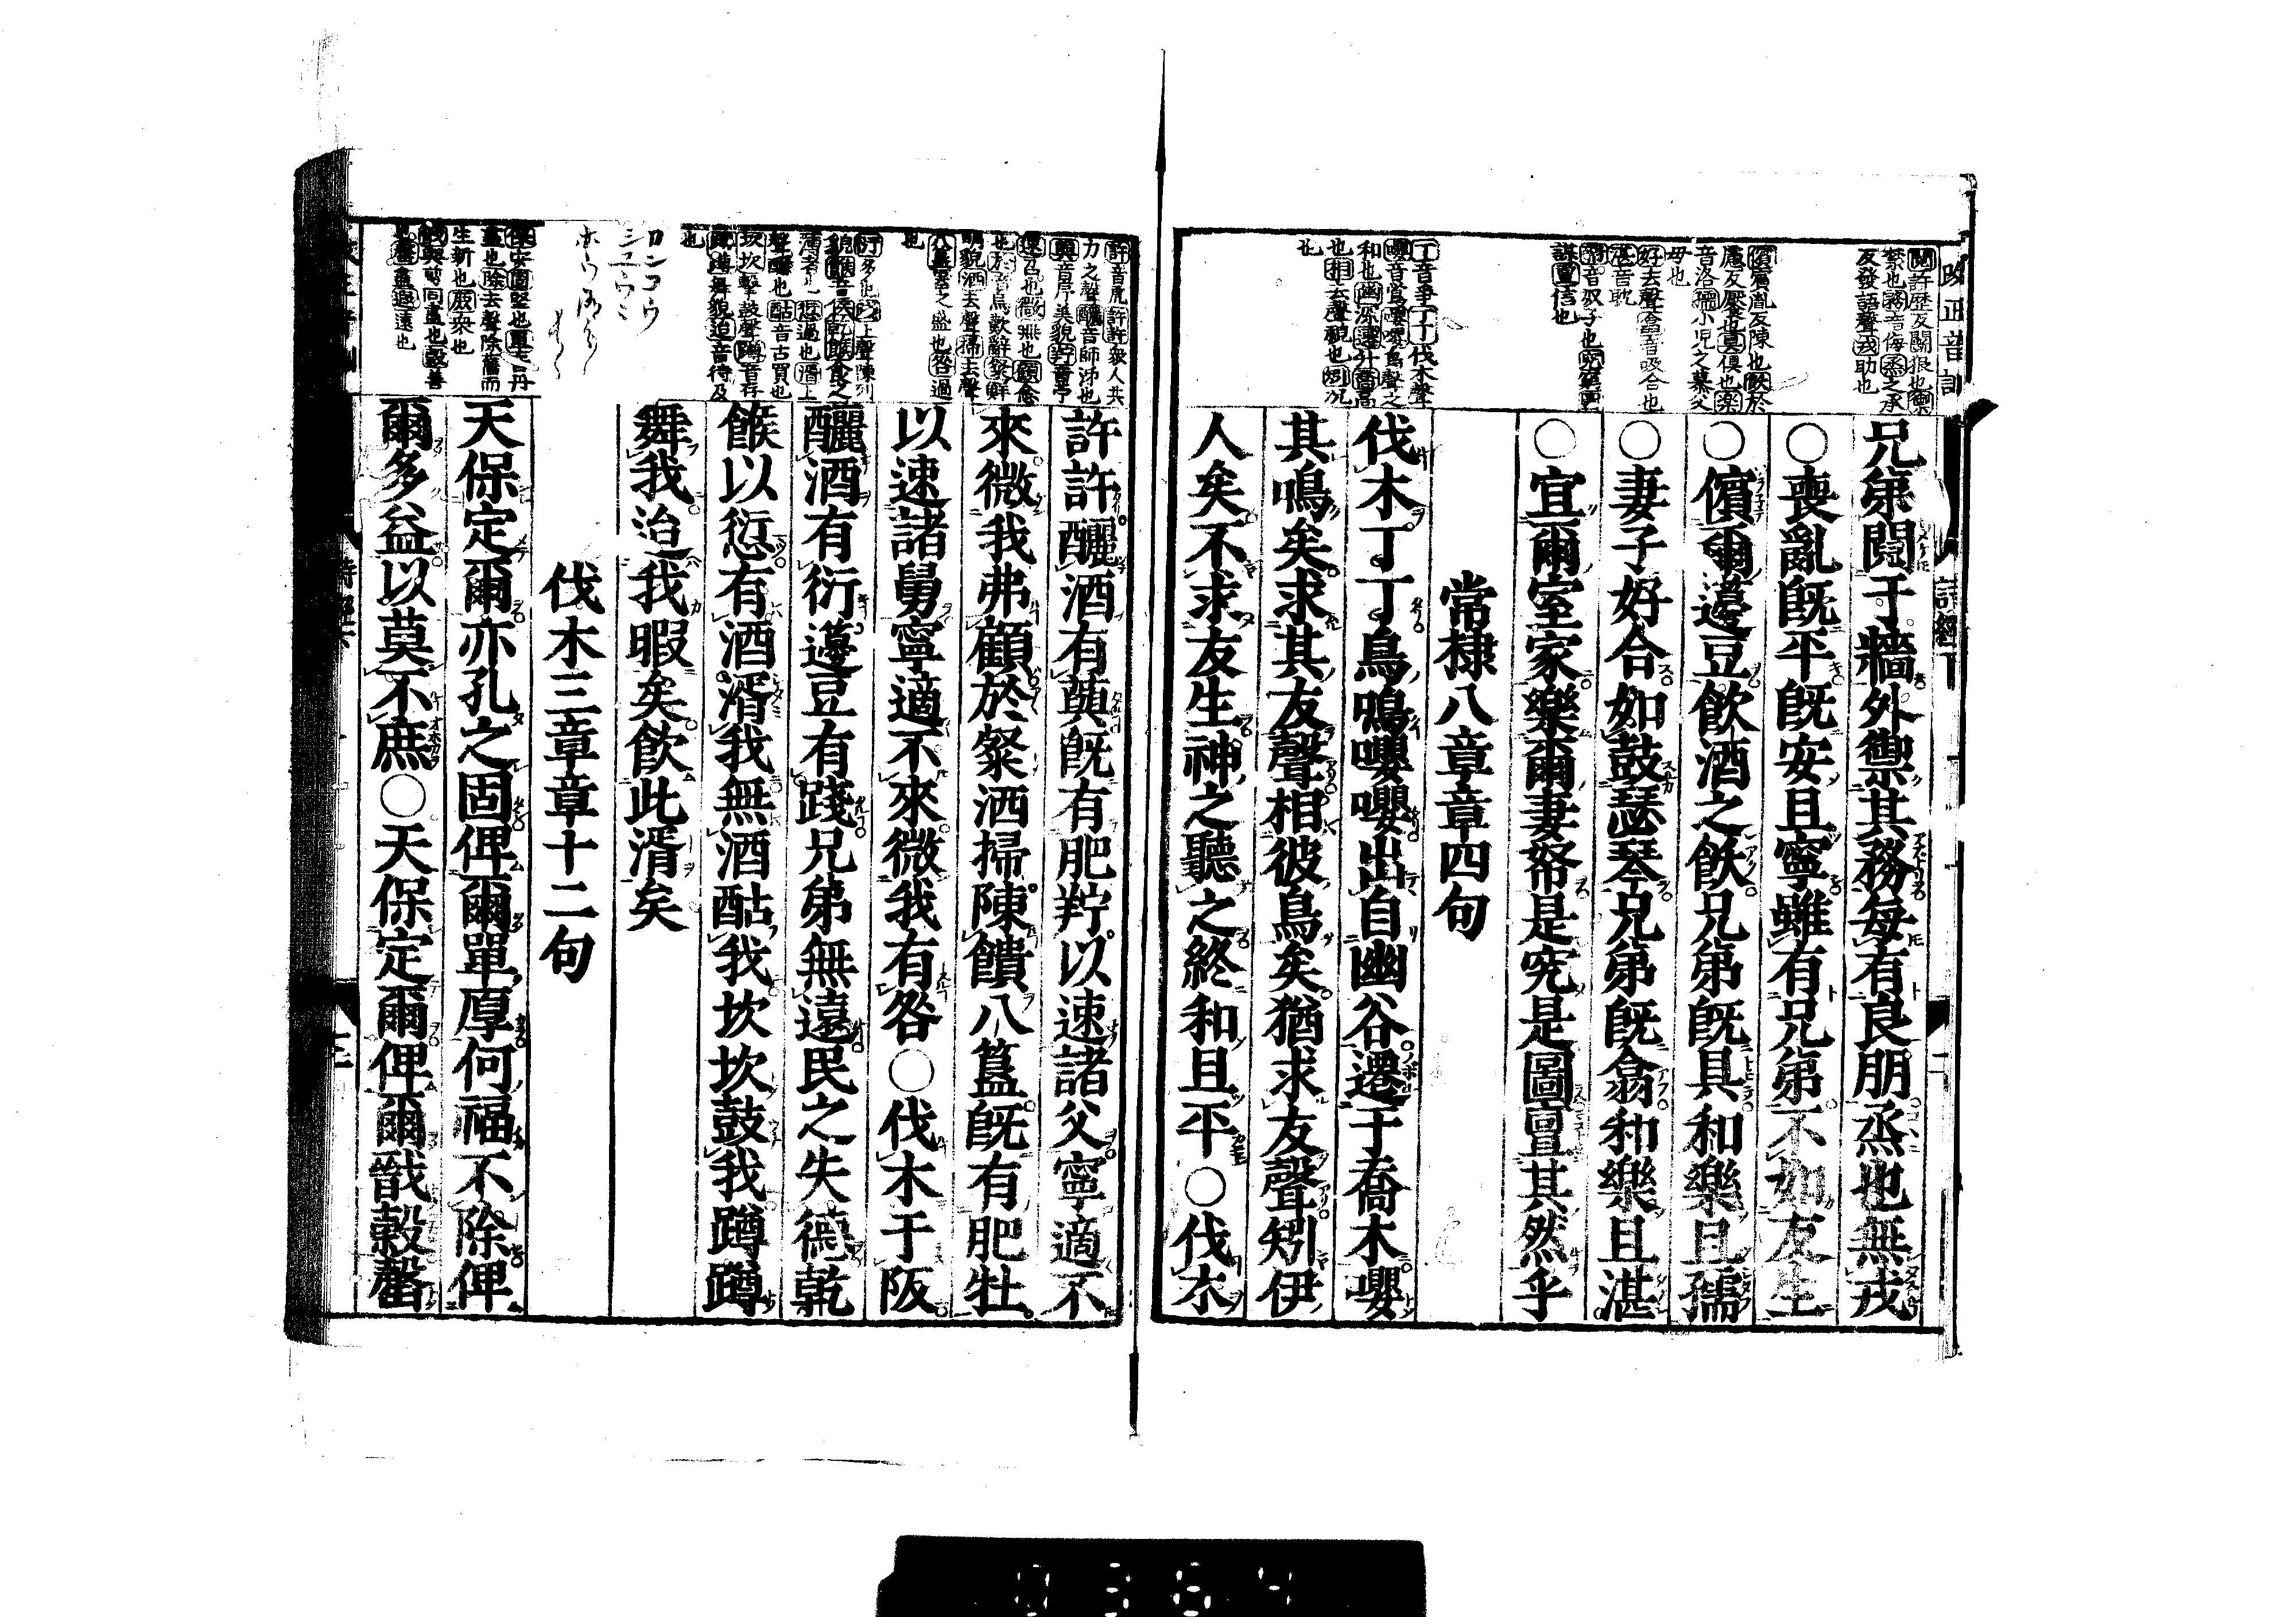 改正音訓
詩經下
二
鬩許歴友鬪狠也禦
禁也務音侮烝之承
友發語聲戎助也
兄弟鬩于牆外禦其務每有良朋烝也無戎
○喪亂既平既安且寧雖有兄弟不如友生
儐賓胤友陳也飫於
慮友饜也具俱也樂
音洛孺小児之慕父
母也
○儐爾籩豆飲酒之飫兄弟既具和樂且孺
好去聲翕音吸合也
湛音耽
○妻子好合如鼓瑟琴兄弟既翕和樂且湛
帑音奴子也究窮圖
謀亶信也
○宜爾室家樂爾妻帑是究是圖亶其然乎
常棣八章章四句
丁音爭丁丁伐木聲
嚶音鶯嚶嚶鳥聲之
和也幽深遷升喬高
也相去聲視也矧况
也
伐木丁丁鳥鳴嚶嚶出自幽谷遷于喬木嚶
其鳴矣求其友聲相彼鳥矣猶求友聲矧伊
人矣不求友生神之聽之終和且平○伐木
許音虎許許衆人共
力之聲釃音師泲也
藇音序美貌羜音宁
速召也微無也顧念
也於音烏歎辭粲鮮
明貌洒去聲掃去聲
八簋器之盛也咎過
也
許許釃酒有藇既有肥羜以速諸父寧適不
來微我弗顧於粲洒掃陳饋八簋既有肥牡
以速諸舅寧適不來微我有咎○伐木于阪
衍多也踐上聲陳列
貌餱音侯乾餱食之
薄者也愆過也湑上
聲釃也酤音古買也
坎坎擊鼓聲蹲音存
蹲蹲舞貌迨音待及
也
釃酒有衍籩豆有踐兄弟無遠民之失德乾
餱以愆有酒湑我無酒酤我坎坎鼓我蹲蹲
舞我迨我暇矣飲此湑矣
伐木三章章十二句
保安固堅也單音丹
盡也除去聲除舊而
生新也庶衆也
戩與剪同盡也穀善
也罄盡遐遠也
天保定爾亦孔之固俾爾單厚何福不除俾
爾多益以莫不庶○天保定爾俾爾戩穀罄